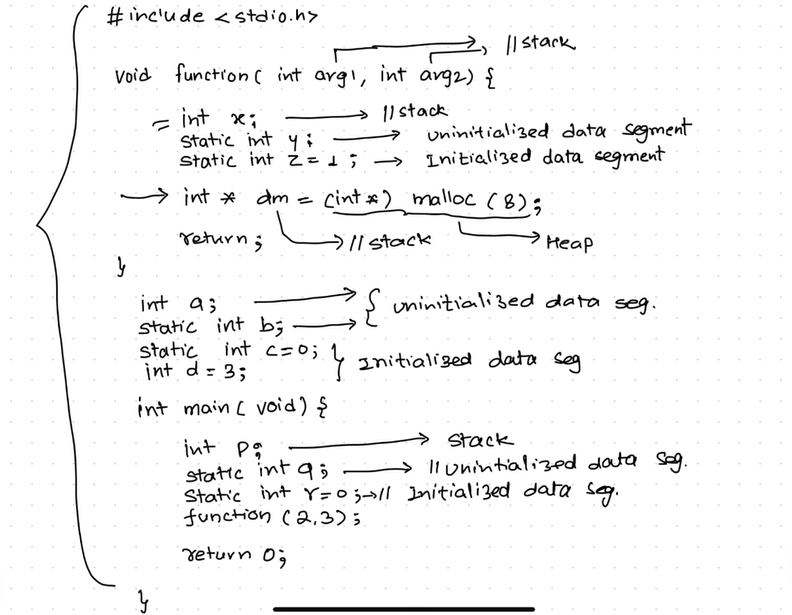 #include <stdio.h>
// stack
void function( int arg1, int arg2) {
= int x; → // stack
static int y; → uninitialized data segment
static int z = 1 ; → Initialized data segment
→ int * dm = (int*) malloc (8);
return; → // stack → Heap
}
int a; → { uninitialized data seg.
static int b; →
static int c=0; } Initialized data seg
int d = 3;
int main( void) {
int p; → stack
static int q; → // Unintialized data seg.
Static int r=0;→// Initialized data seg.
function (2,3);
return 0;
}